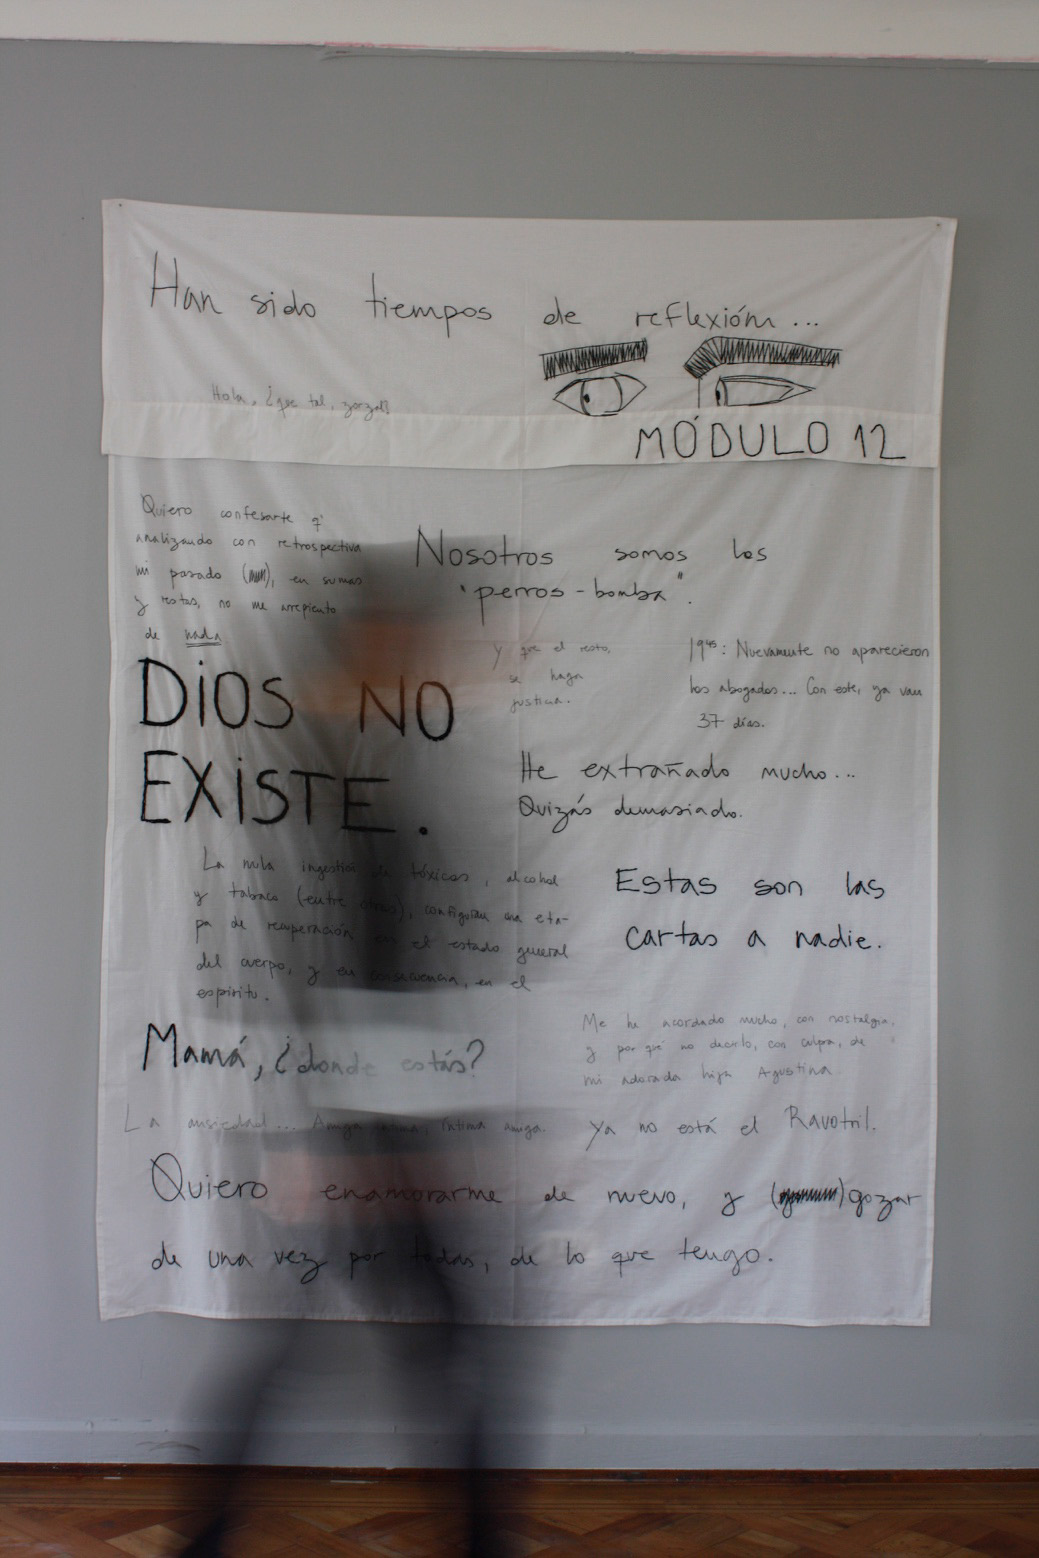 Han sido tiempos de reflexión...
Hola, ¿que tal, zorzal?
MÓDULO 12
Quiero confesarte q'
analizando con retrospectiva
mi pasado ( ), en sumas
y restas, no me arrepiento
de nada
Nosotros somos los
"perros-bomba".
y que el resto,
se haga
justicia.
19⁴⁵: Nuevamente no aparecieron
los abogados... Con este, ya van
37 días.
DiOS NO
EXiSTE.
He extrañado mucho...
Quizás demasiado.
La nula ingestión de tóxicos, alcohol
y tabaco (entre otros), configuran una eta-
pa de recuperación en el estado general
del cuerpo, y en consecuencia, en el
espíritu.
Estas son las
cartas a nadie.
Mamá, ¿donde estás?
Me he acordado mucho, con nostalgia,
y por qué no decirlo, con culpa, de
mi adorada hija Agustina
La ansiedad... Amiga íntima, íntima amiga.
Ya no está el Ravotril.
Quiero enamorarme de nuevo, y ( ) gozar
de una vez por todas, de lo que tengo.